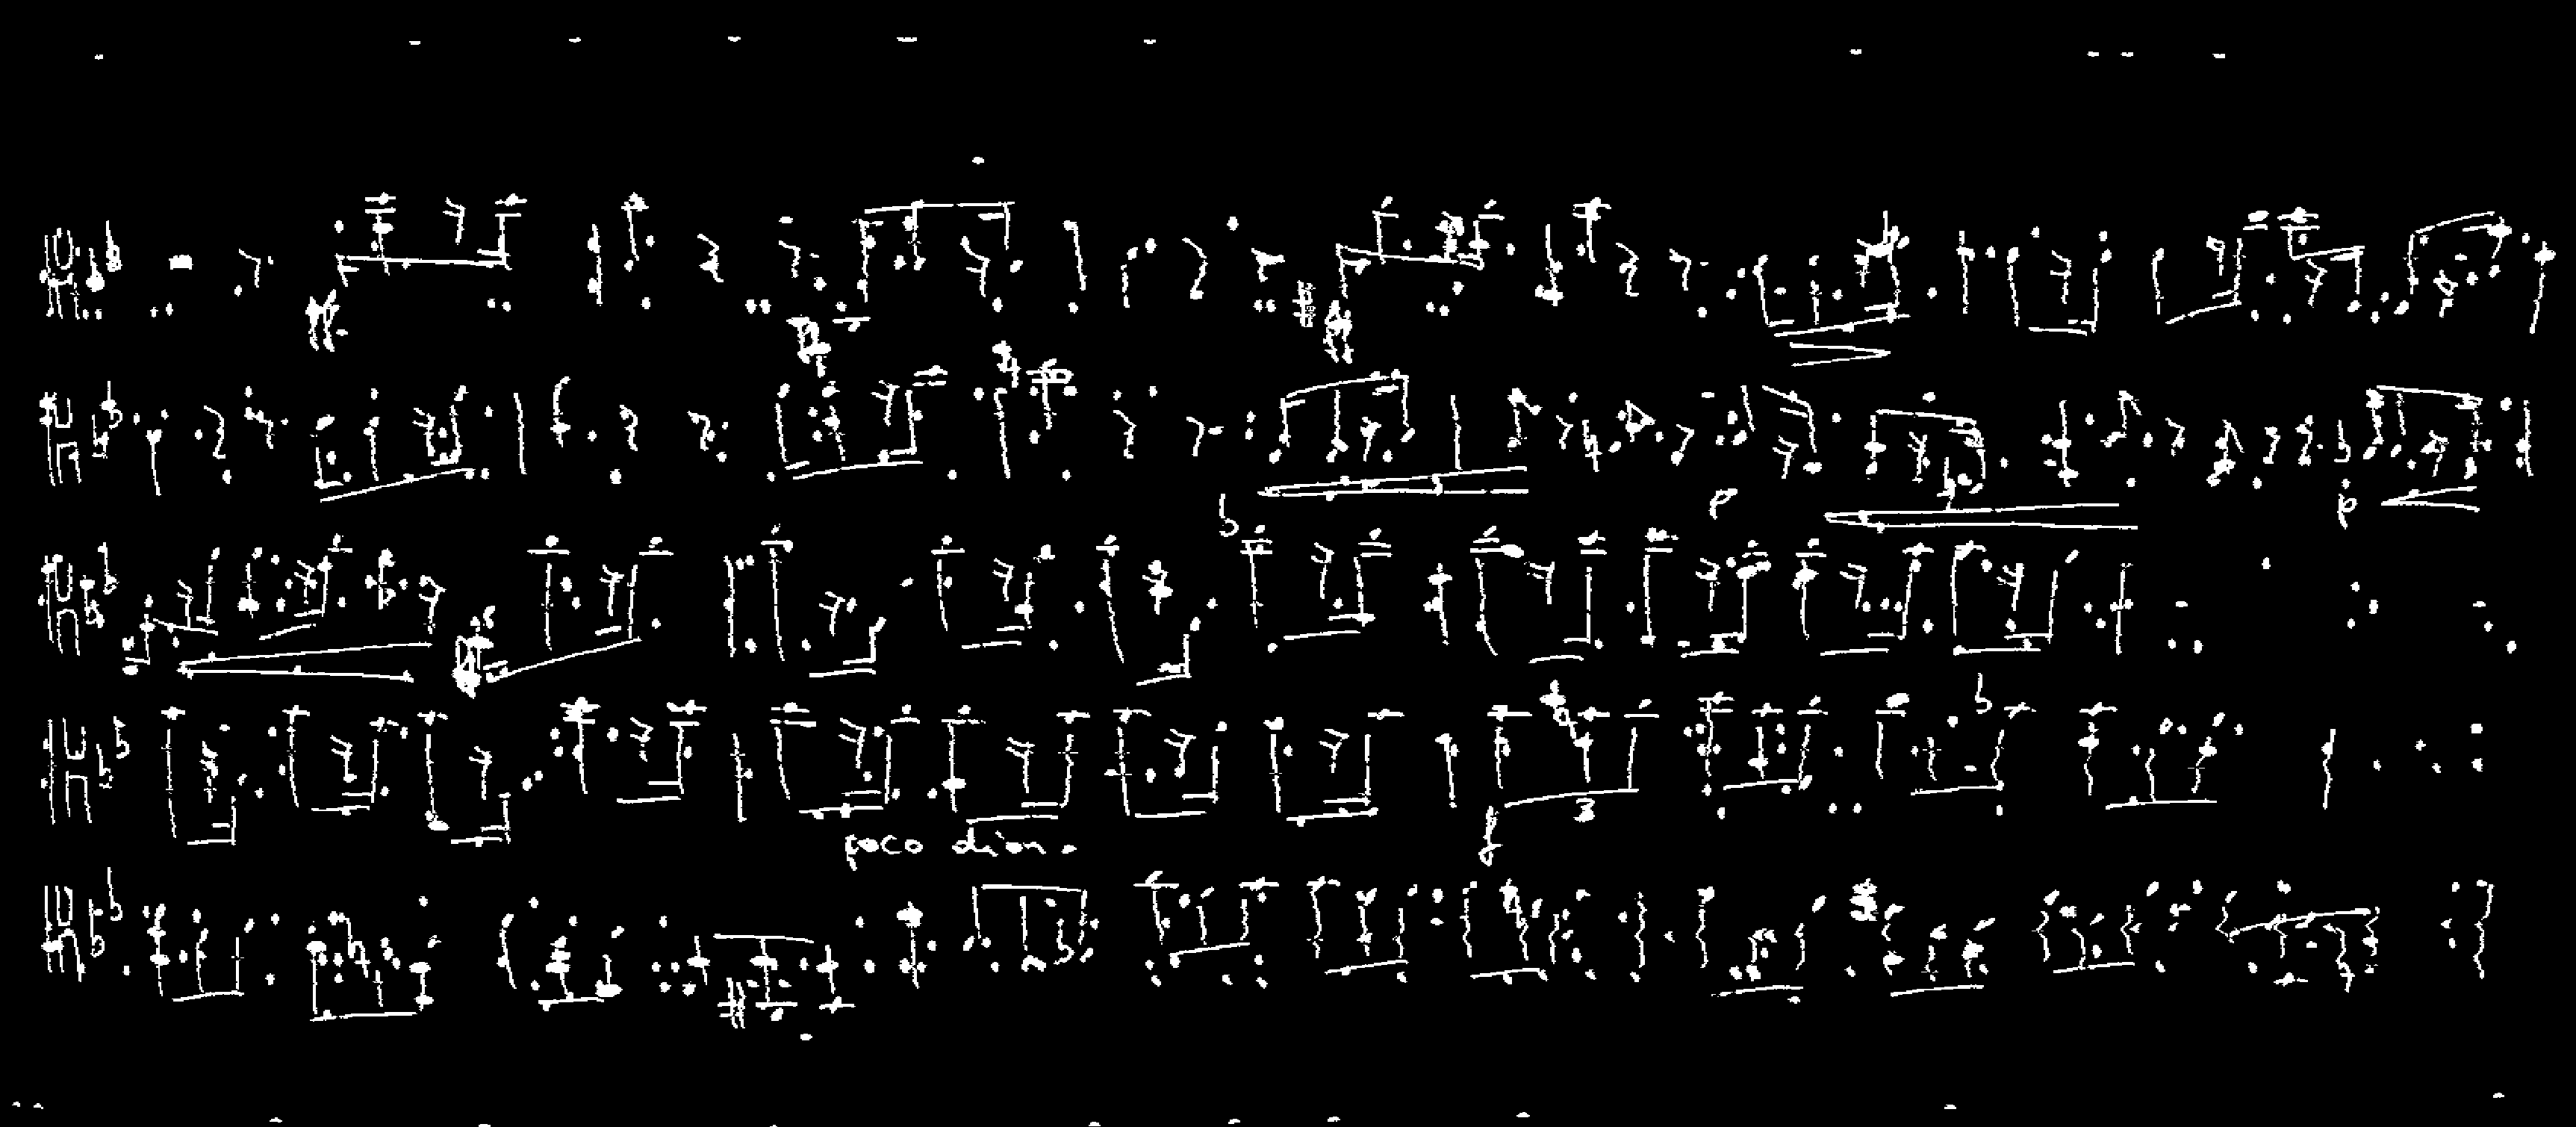 p
p
poco dim.
f
3